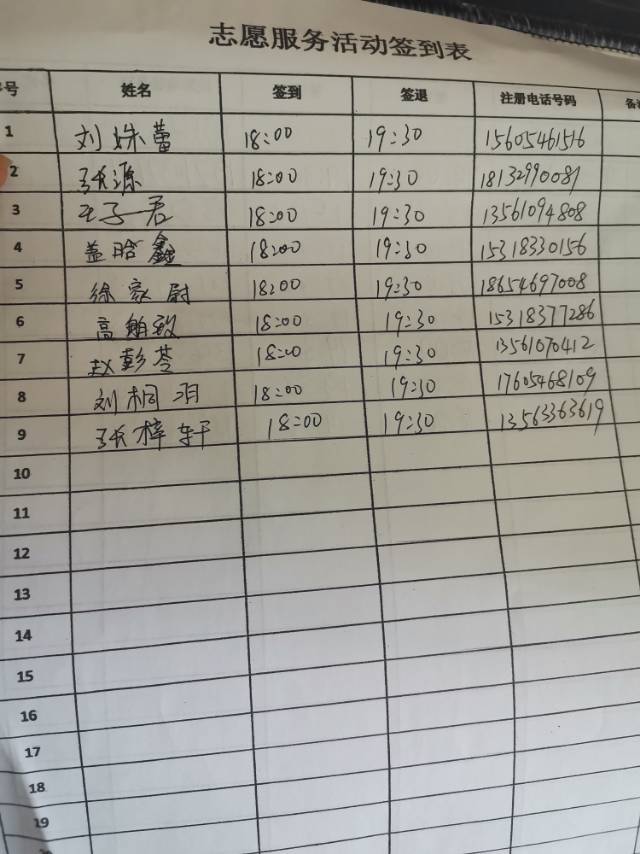 志愿服务活动签到表
号 姓名 签到 签退 注册电话号码 备
1 刘姝蕾 18:00 19:30 15605461516
2 张源 18:00 19:30 18132990087
3 王子君 18:00 19:30 13561094808
4 盖晗鑫 18:00 19:30 15318330156
5 徐豪尉 18:00 19:30 18654697008
6 高 18:00 19:30 15318377286
7 赵彭 18:00 19:30 13561070412
8 刘桐羽 18:00 19:30 17605468109
9 张梓轩 18:00 19:30 13563363619
10
11
12
13
14
15
16
17
18
19